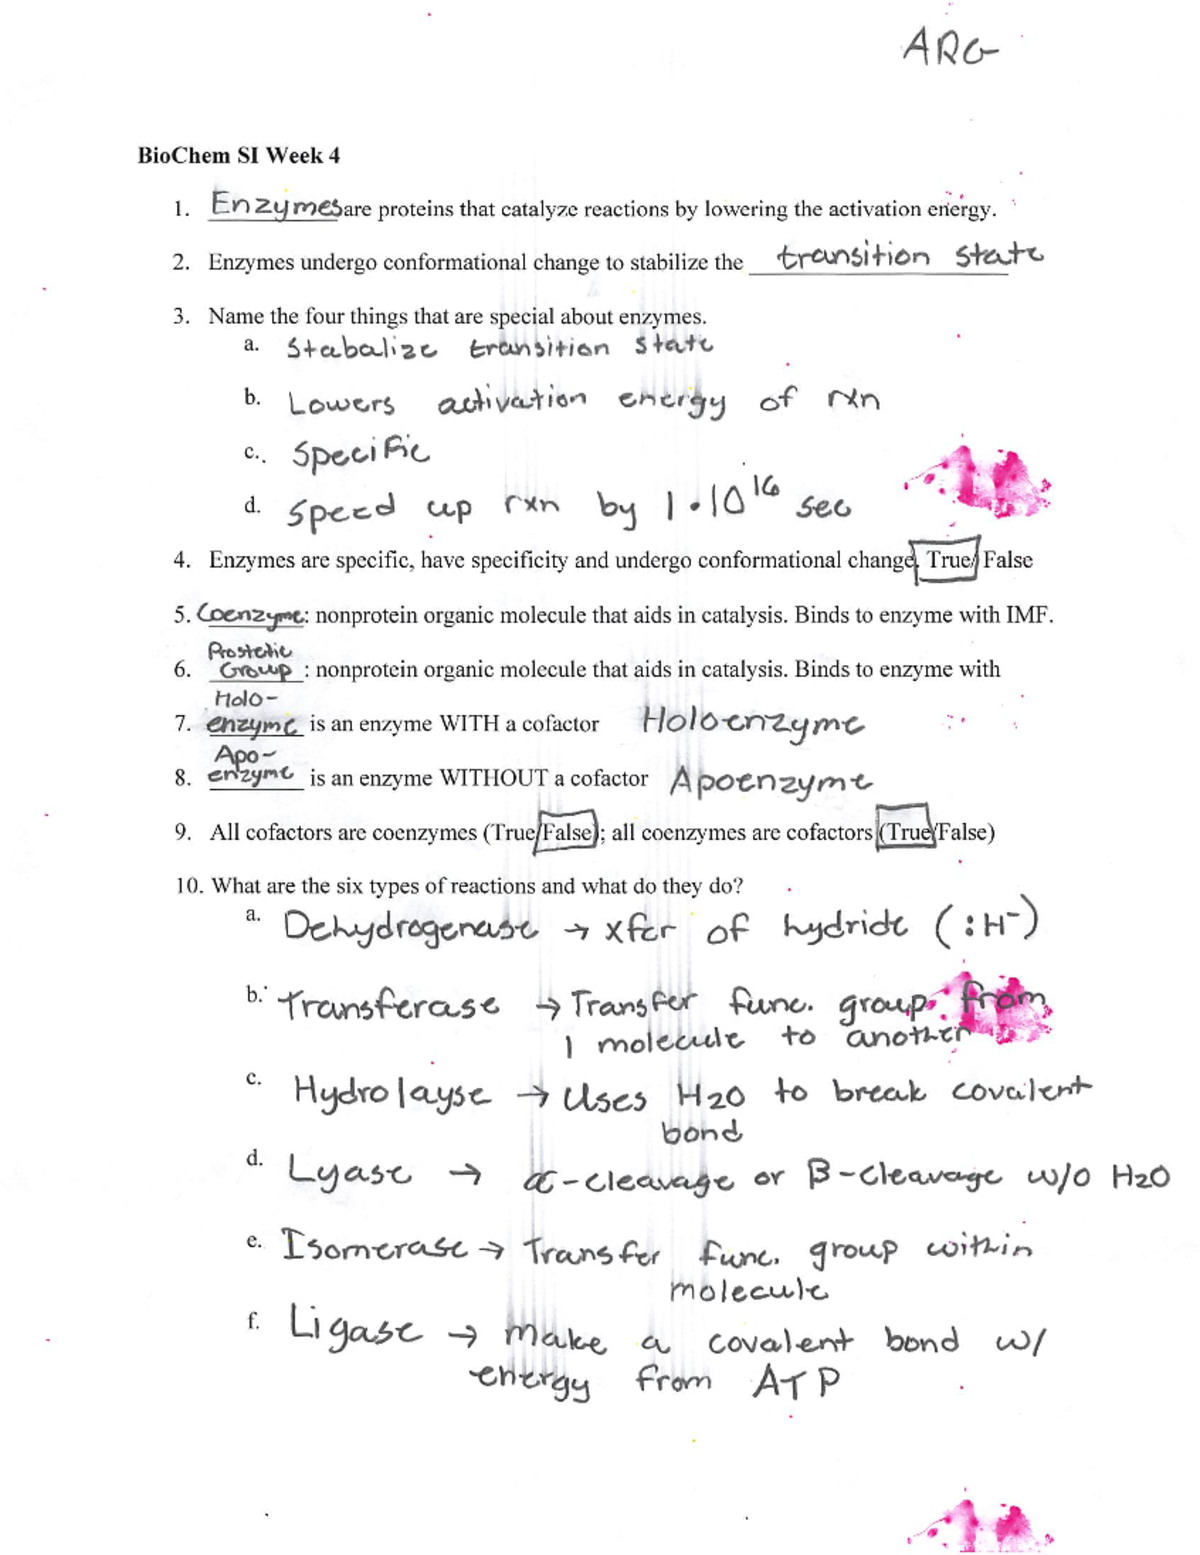 ARG
BioChem SI Week 4
1. Enzymes are proteins that catalyze reactions by lowering the activation energy.
2. Enzymes undergo conformational change to stabilize the transition state
3. Name the four things that are special about enzymes.
a. Stabalize transition state
b. Lowers activation energy of rxn
c. Specific
d. Speed up rxn by 1•10^16 sec
4. Enzymes are specific, have specificity and undergo conformational change. True/ False
5. Coenzyme: nonprotein organic molecule that aids in catalysis. Binds to enzyme with IMF.
Prostetic
6. Group : nonprotein organic molecule that aids in catalysis. Binds to enzyme with
Holo-
7. enzyme is an enzyme WITH a cofactor Holoenzyme
Apo-
8. enzyme is an enzyme WITHOUT a cofactor Apoenzyme
9. All cofactors are coenzymes (True/False); all coenzymes are cofactors (True/False)
10. What are the six types of reactions and what do they do?
a. Dehydrogenase → xfer of hydride (:H⁻)
b. Transferase → Transfer func. group from
1 molecule to another
c. Hydrolayse → Uses H2O to break covalent
bond
d. Lyase → α-cleavage or β-cleavage w/o H2O
e. Isomerase → Transfer func. group within
molecule
f. Ligase → Make a covalent bond w/
energy from ATP